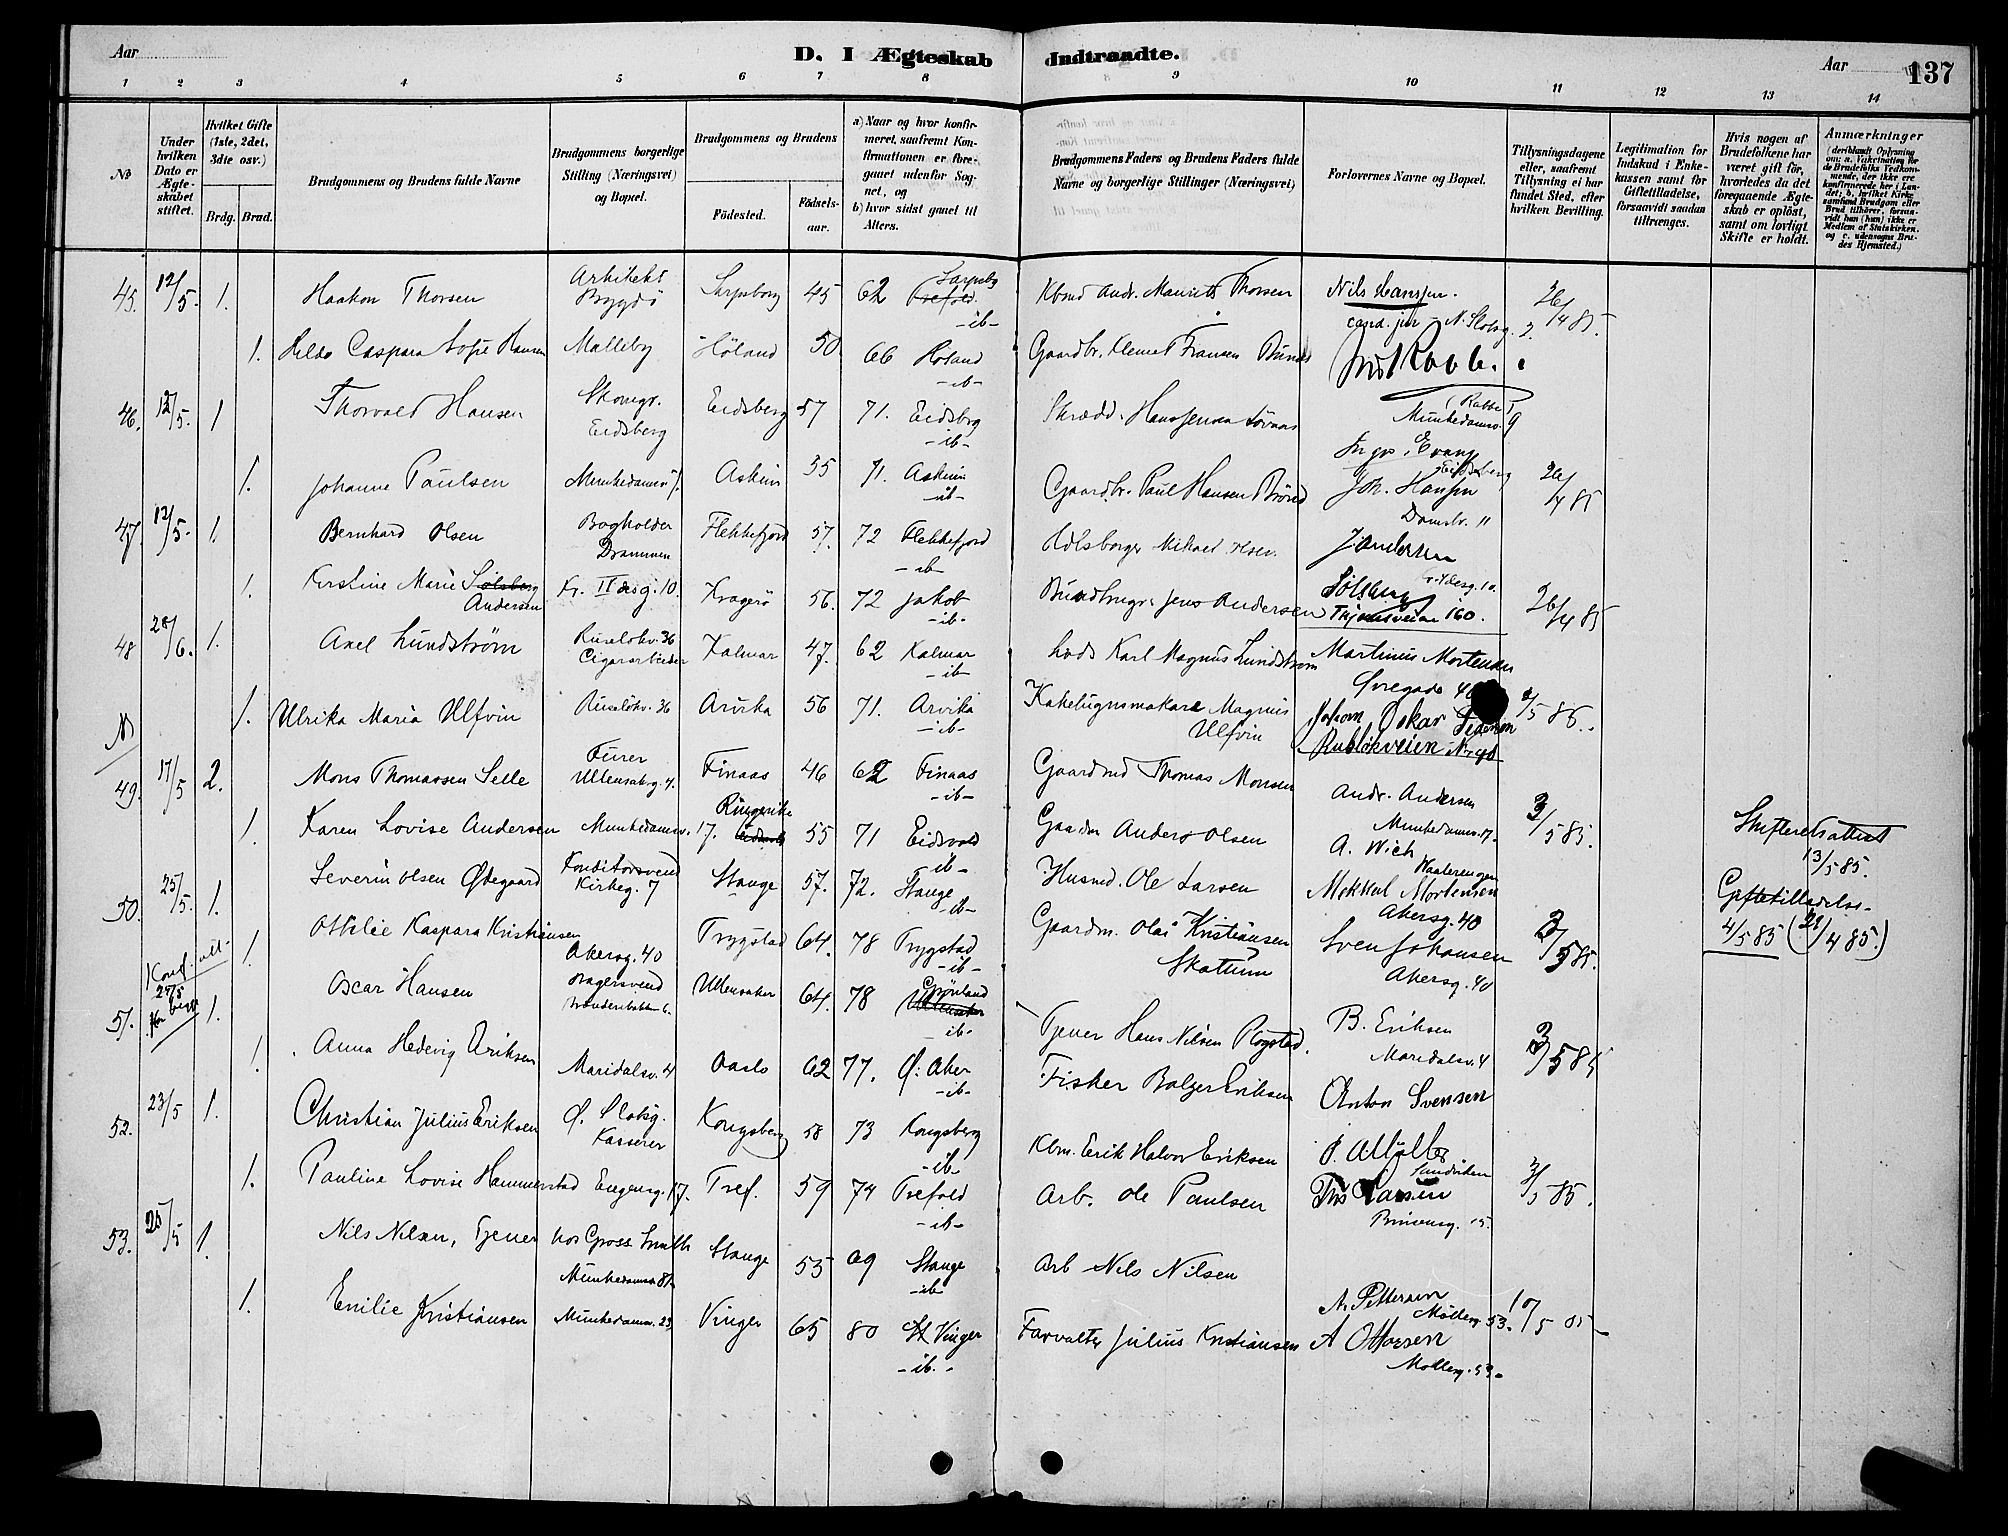 Aar
D. I Ægteskab Indtraadte.
Aar
137
1 2 3 4 5 6 7 8 8 9 10 11 12 13 14
No
Under hvilken Dato er Ægteskabet stiftet.
Hvilket Gifte (1ste, 2det, 3die osv.)
Brdg. Brud.
Brudgommens og Brudens fulde Navne
Brudgommens borgerlige Stilling (Næringsvei) og Bopæl.
Brudgommens og Brudens
Födested.
Födsels-aar.
a) Naar og hvor konfirmeret, saafremt Konfirmationen er foregaaet udenfor Sognet, og
b) hvor sidst gaaet til Alters.
Brudgommens Faders og Brudens Faders fulde Navne og borgerlige Stillinger (Næringsvei)
Forlovernes Navne og Bopæl.
Tillysningsdagene eller, saafremt Tillysning ei har fundet Sted, efter hvilken Bevilling.
Legitimation for Indskud i Enkekassen samt for Giftetilladelse, forsaavidt saadan tiltrænges.
Hvis nogen af Brudefolkene har været gift för, hvorledes da det foregaaende Ægteskab er oplöst, samt om lovligt Skifte er holdt.
Anmærkninger
(deriblandt Oplysning om: a. Vakcination for de Brudefolks Vedkommende, der ikke ere konfirmerede her i Landet; b. hvilket Kirkesamfund Brudgom eller Brud tilhörer, forsaavidt han (hun) ikke er Medlem af Statskirken, og c. udensogns Brudes Hjemsted.)
45. 12/5. 1. Haakon Thorsen Arkitekt Bygdö Sarpsborg 45 62 Sarpsbg Trefold. -ib- Kbmd Andr. Maurits Thorsen Nils Hansen. cand. jur - N. Slotsg. 2. 26/4 85.
1. Helda Caspara Sofie Hansen Malleby Höland 50 66 Höland -ib- Gaardbr. Klemet Fransen Bunes Rabbe.
46. 12/5. 1 Thorvald Hansen Skomgr. Eidsberg Eidsberg 57 71. Eidsbrg -ib- Skrædd. Hans Jensen (Rabbe) Munkedamsv. 9
1. Johanne Paulsen Munkedamsv Askim 35 71. Askim -ib- Gaardbr. Paul Hansen Eidsberg Joh. Hansen Damstr. 11 26/4 85
47. 12/5. 1. Bernhard Olsen Bogholder Drammen Flekkefjord 57. 72 Flekkefjord -ib- Mikael Olsen J Andersen
1. Kirstine Marie Sølsberg Andersen Kragerö 56. 72 Jakob -ib- Jens Andersen Sölsberg 160. 26/4 85
48 28/6. 1. Axel Lundström Ruselökv. 36 Cigararbeider Kalmar 47. 62 Kalmar -ib- Lods Karl Magnus Lundström Martinus Mortensen
1. Ulrika Maria Ulfvin Ruselökv. 36 Arvika 56 71. Arvika -ib- Kakelugnsmakare Magnus Ulfvin Oskar /5 85.
49. 17/5 2. Mons Thomassen Selle Furer Ullensakerg. 4. Finaas 46 62 Finaas -ib- Gaardmd Thomas Monsen Andr. Andersen Munkedamsv. 17. 3/5 85.
1. Karen Lovise Andersen Munkedamsv. 17. Ringerike 55 71 Eidsvold -ib- Gaardm Anders Olsen A. Wich Waalerengen
Skifteretsattest 13/5 85.
50. 25/5. 1. Severin Olsen Ødegaard Konditorsvend Kirkeg. 7 Stange 57. 72. Stange -ib- Husmd. Ole Larsen Mortensen Akersg. 40
Giftetilladelse 4/5 85 (21/4 85.)
1. Ottilie Kaspara Kristiansen Akersg. 40 Trygstad 64. 78 Trygstad -ib- Gaardm. Olai Kristiansen Skatum Sven Johansen Akersg. 40 3/5 85.
51. 1. Oscar Hansen Bagersvend Ullensaker 64. 78 Grönland Ullensaker -ib- Tjener Hans Nilsen Rogstad. B. Eriksen Maridalsv. 4
1. Anna Hedevig Eriksen Maridalsv. 4 Oaslo 62 77. Ø: Aker -ib- Fisker Eriksen Anton Svensen 3/5 85
52. 23/5 1. Christian Julius Eriksen Ø. Slotsg. Kasserer Kongsberg 58 73 Kongsberg -ib- Kbm. Erik Halvor Eriksen Sandviken
1. Pauline Lovise Hammerstad Enggsg. 17. Tref. 59 74 Trefold -ib- Arb. Ole Paulsen Larsen 15. 3/5 85.
53. 25/5 1. Nils Nilsen, Tjener hos Gross. Smith Munkedamsv Stange 55 69 Stange -ib- Arb Nils Nilsen A. Pettersen Mölleg. 53. 10/5 85
1. Emilie Kristiansen Munkedamsv. 23 Vinger 65 80 Vinger -ib.- Forvalter Julius Kristiansen A Ottosen Mölleg. 53.